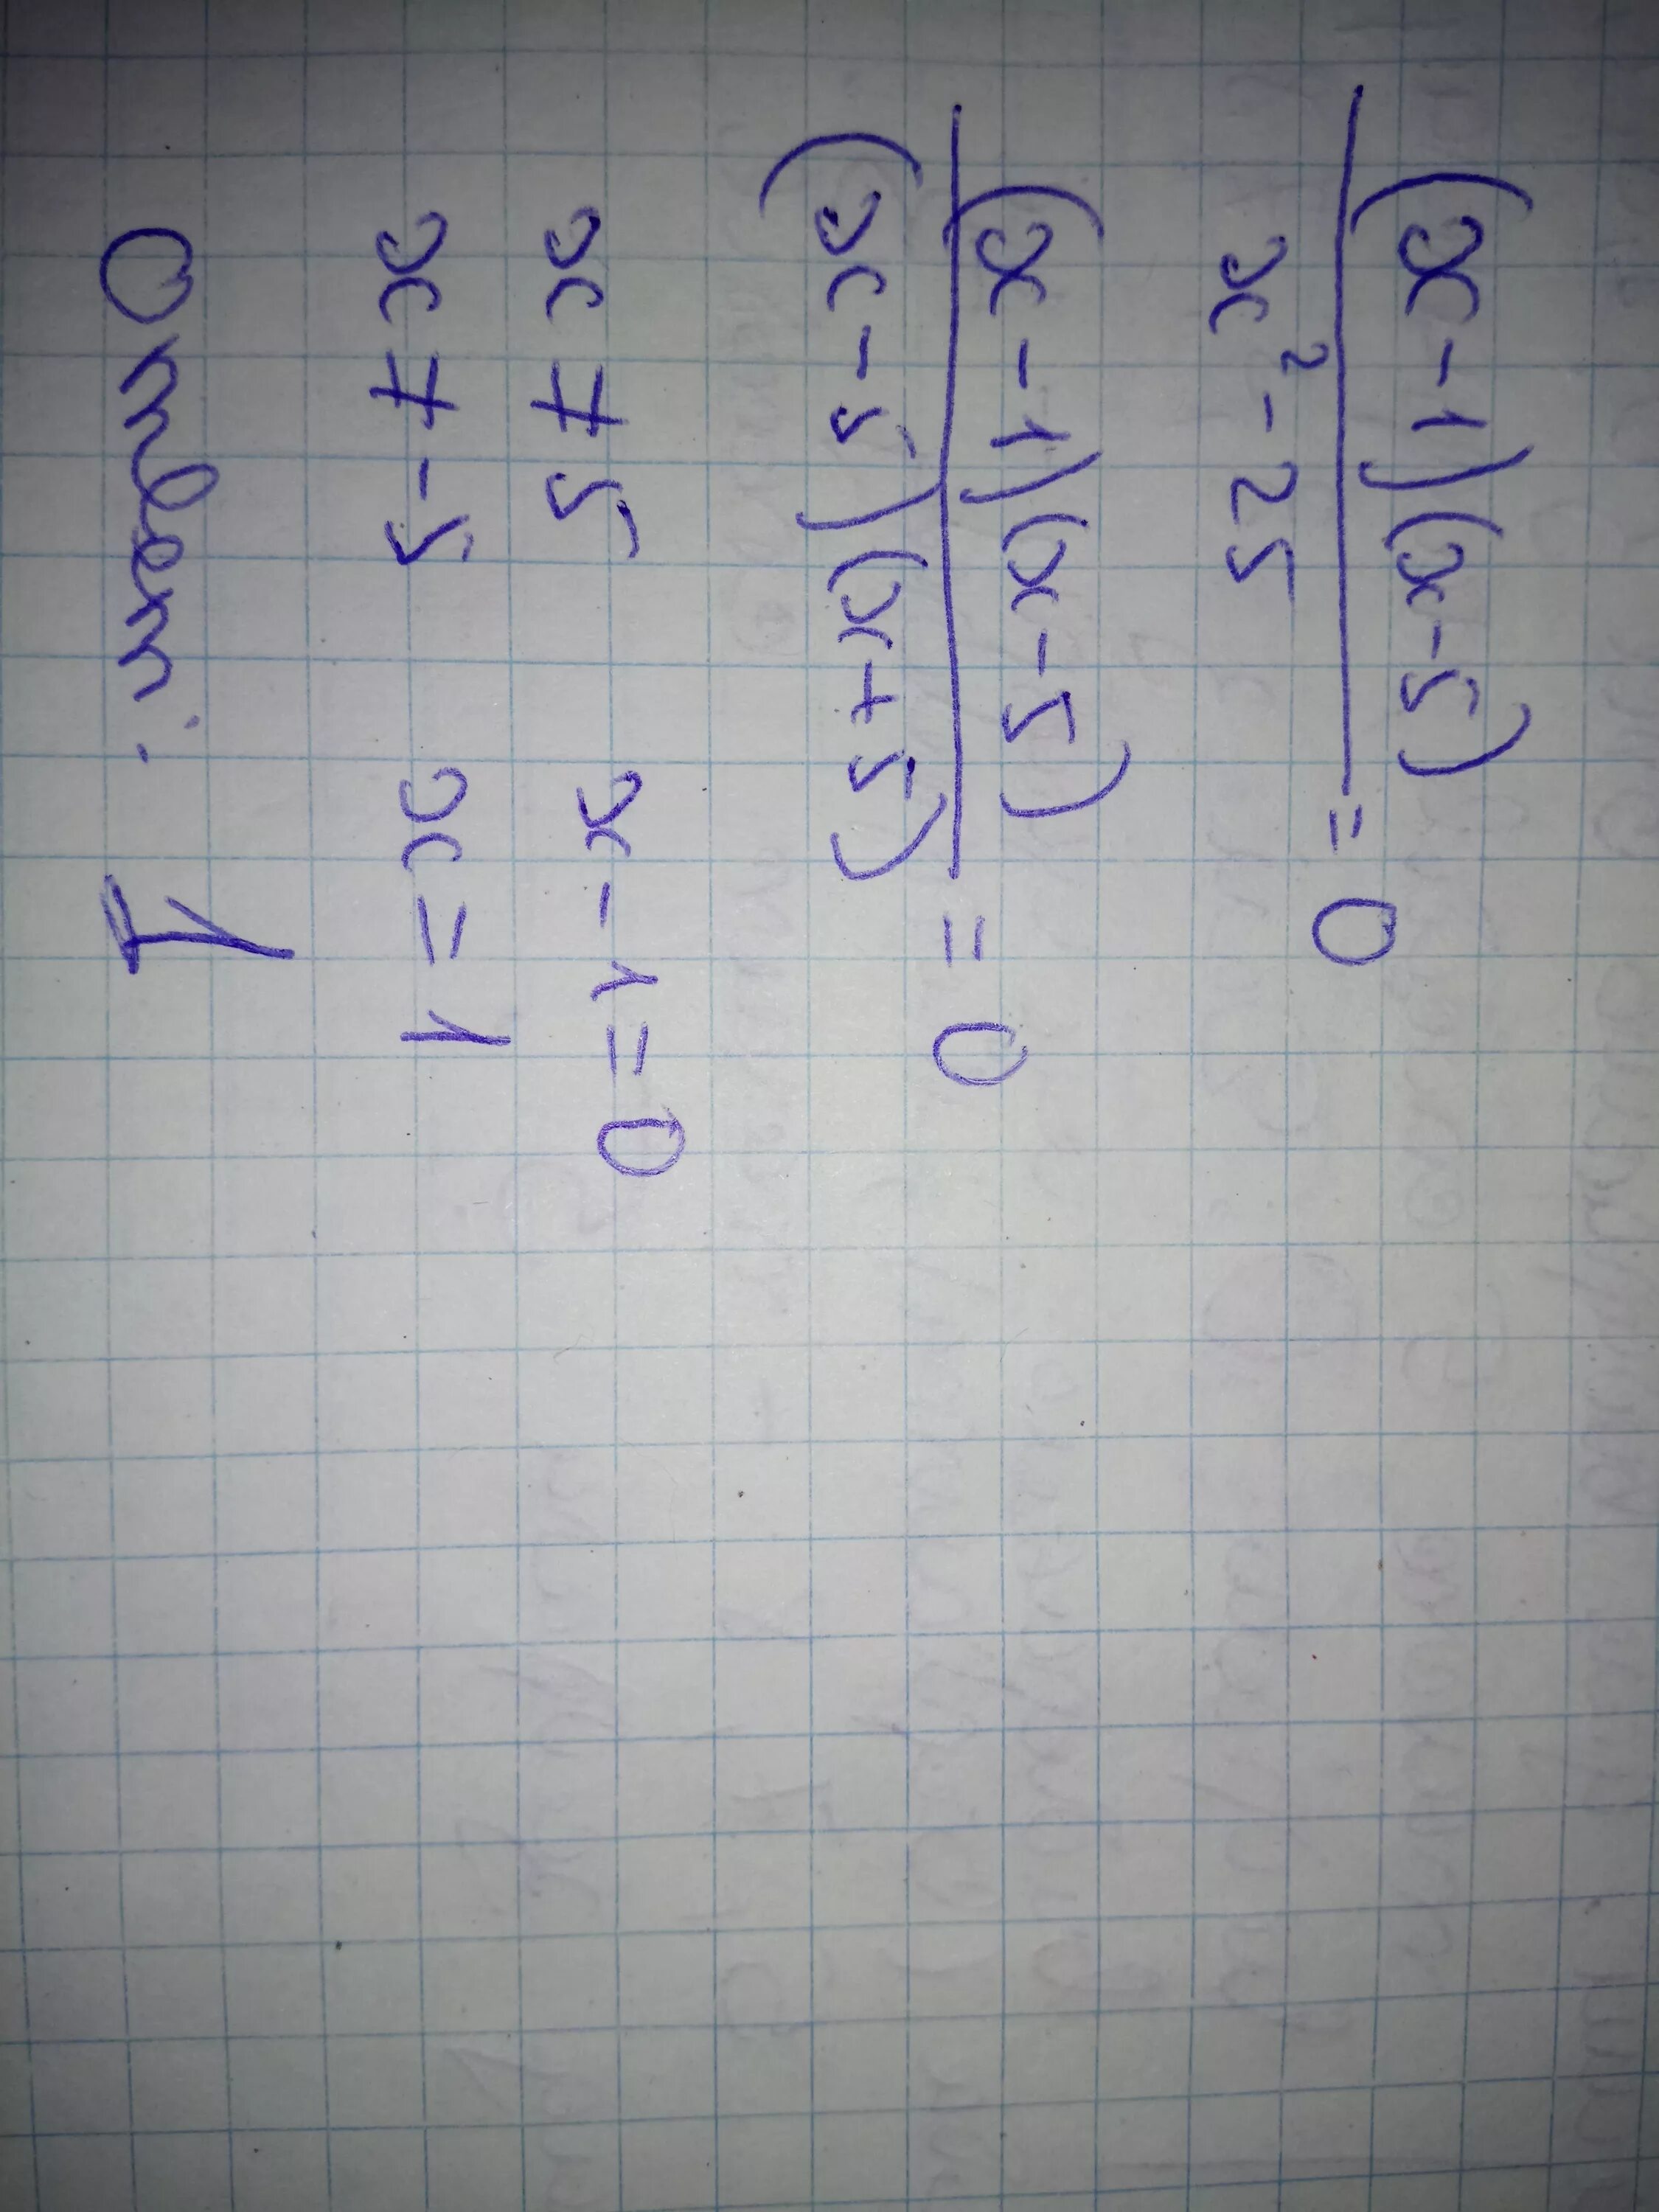 (x-1)(x-5)
x²-25
=0
(x-1)(x-5)
(x-5)(x+5)
=0
x≠5 x-1=0
x≠-5 x=1
Ответ: 1